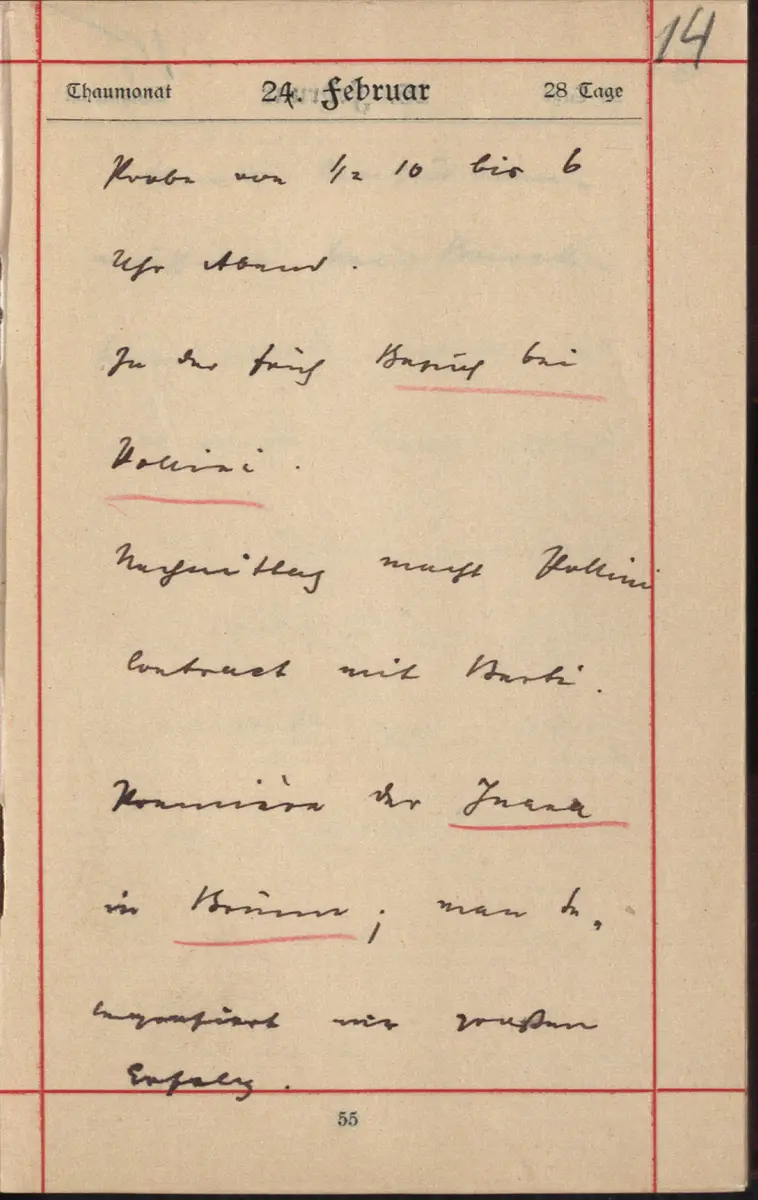 14
Thaumonat 24. Februar 28 Tage
Probe von 1/2 10 bis 6
Uhr Abend.
In der früh Besuch bei
Pollini.
Nachmittag macht Pollini
Contract mit Berti.
Première der Ivana
in Brünn; man te„
legrafiert mir großen
Erfolg.
55